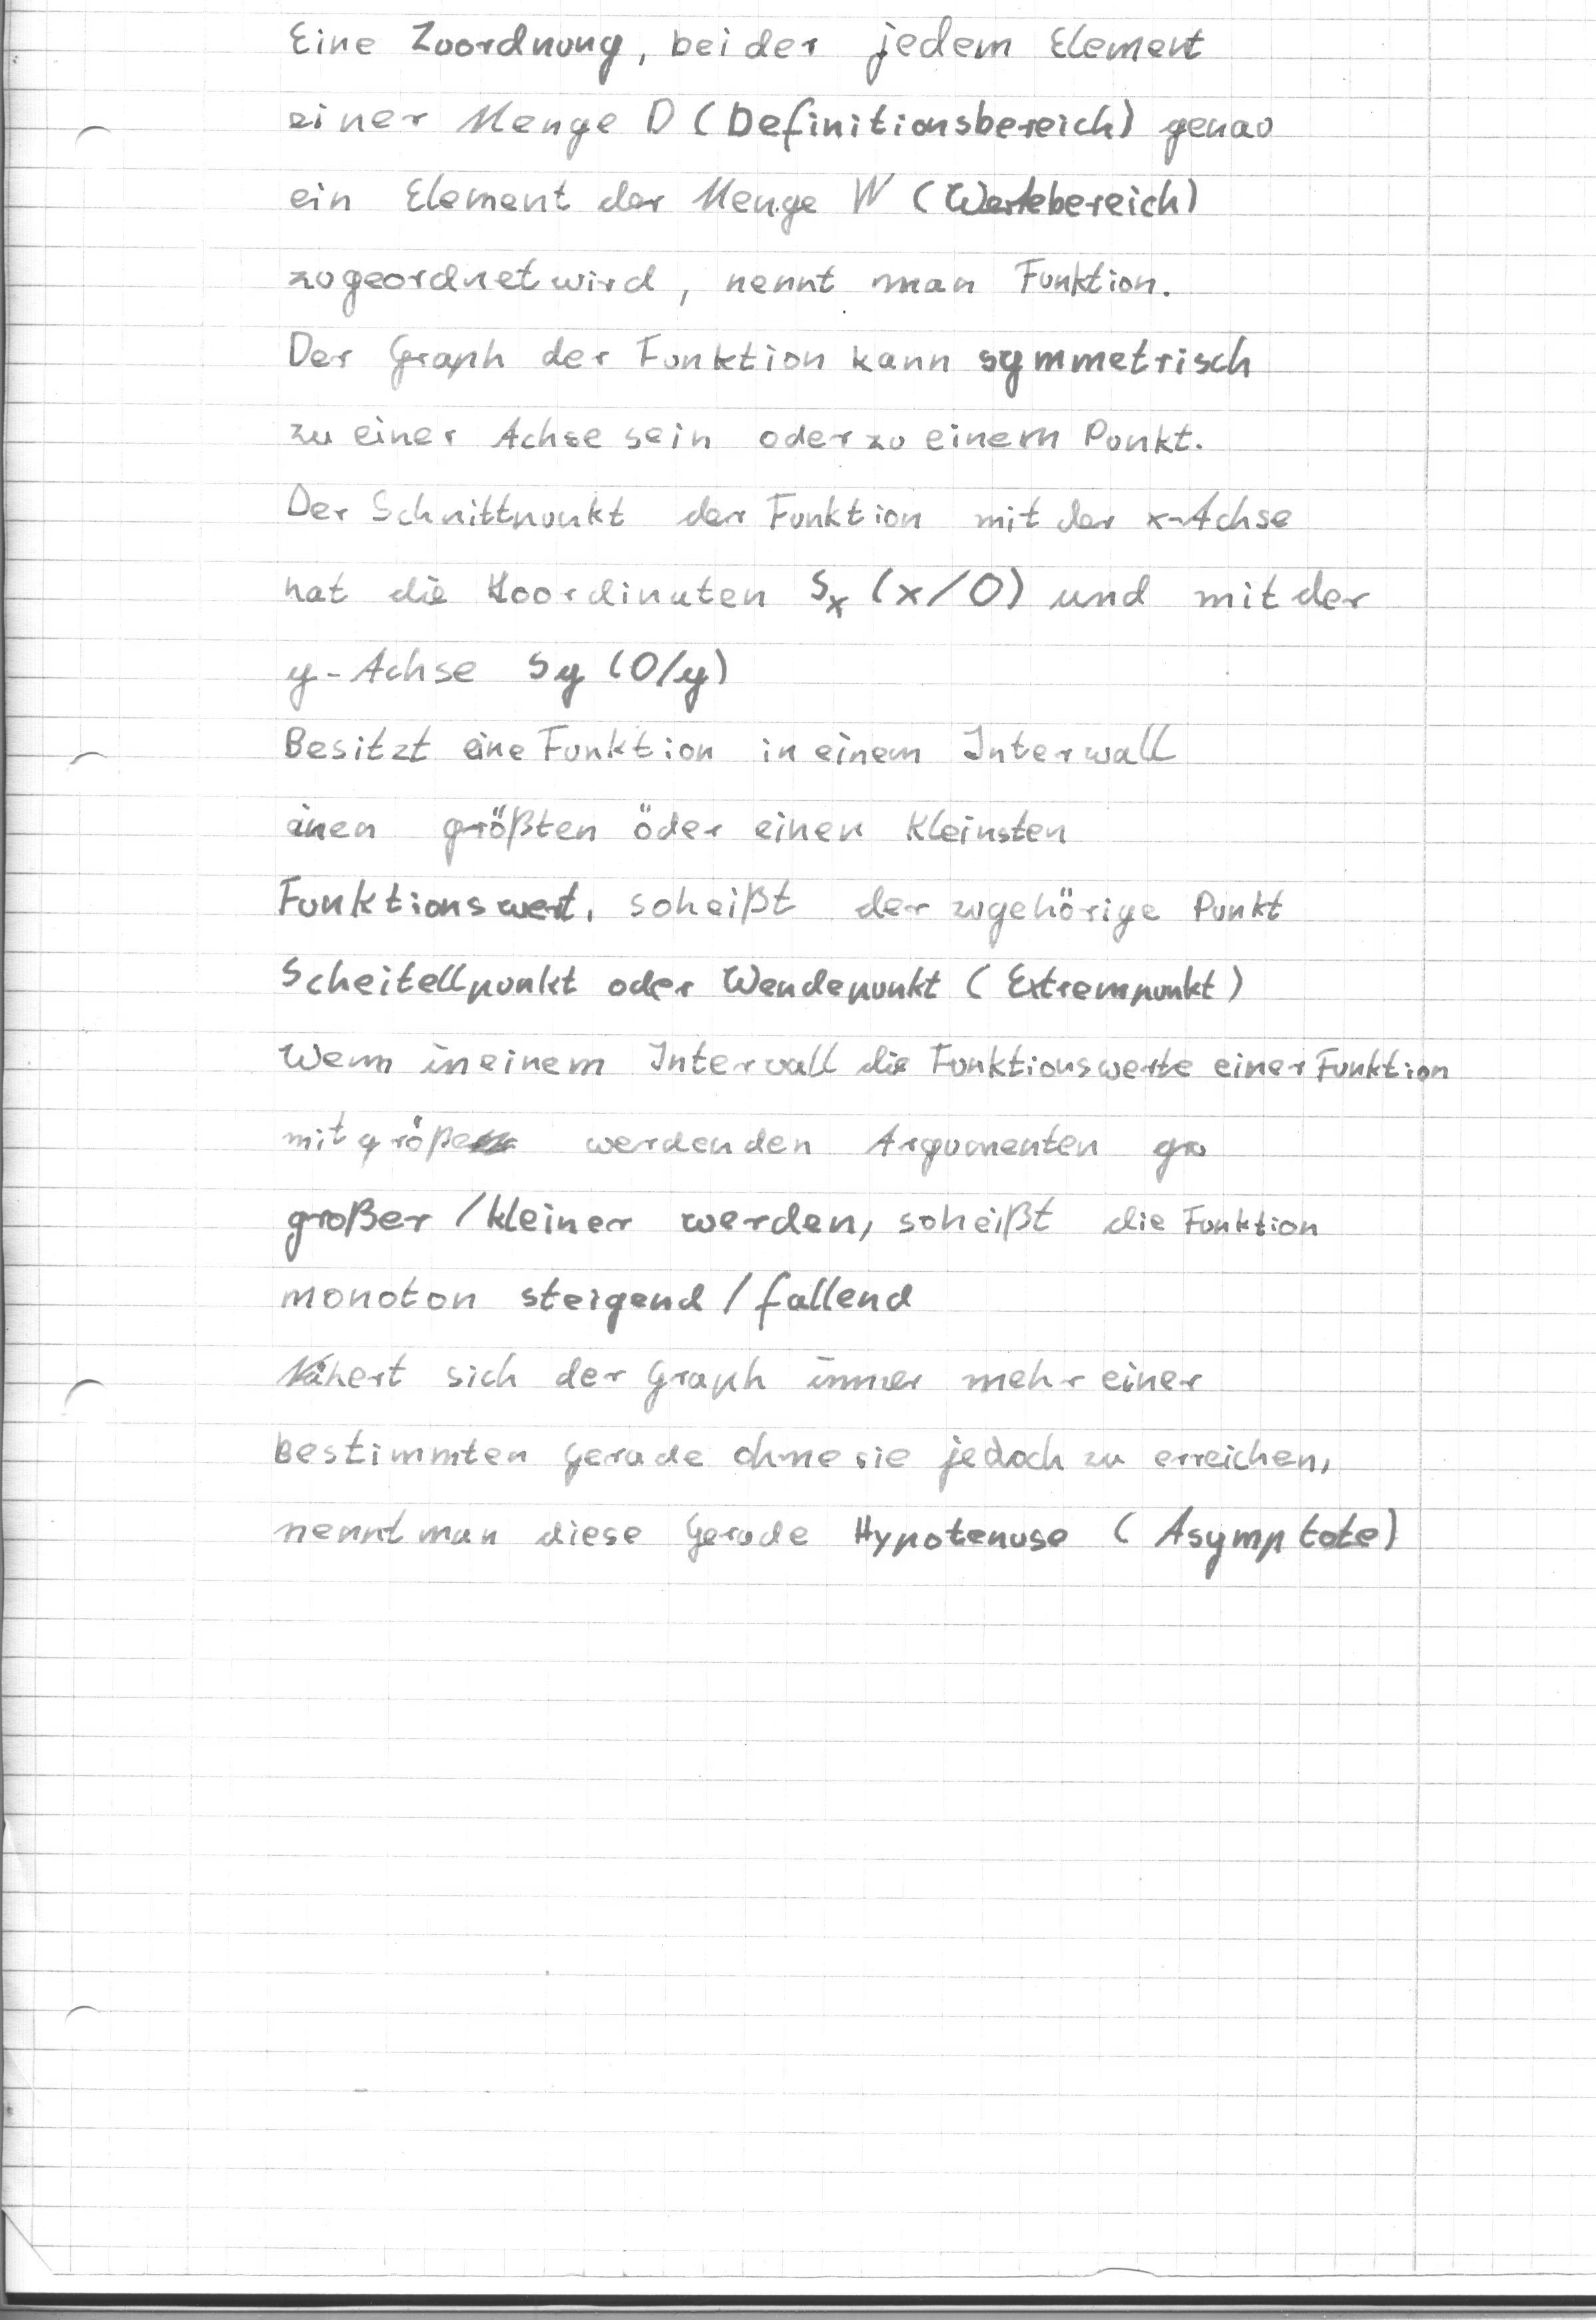 Eine Zuordnung, bei der jedem Element
einer Menge D (Definitionsbereich) genau
ein Element der Menge W (Wertebereich)
zugeordnet wird, nennt man Funktion.
Der Graph der Funktion kann symmetrisch
zu einer Achse sein oder zu einem Punkt.
Der Schnittpunkt der Funktion mit der x-Achse
hat die Koordinaten Sx (x/0) und mit der
y-Achse Sy (0/y)
Besitzt eine Funktion in einem Interwall
einen größten öder einen kleinsten
Funktionswert, so heißt der zugehörige Punkt
Scheitellpunkt oder Wendepunkt (Extrempunkt)
Wenn in einem Intervall die Funktionswerte einer Funktion
mit größe werdenden Argumenten gro
großer / kleiner werden, so heißt die Funktion
monoton steigend / fallend
Nähert sich der Graph immer mehr einer
Bestimmten Gerade ohne sie jedoch zu erreichen,
nennt man diese Gerade Hypotenuse (Asymptote)